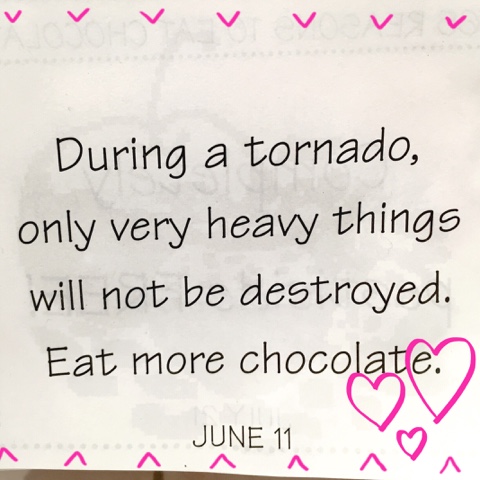 During a tornado,
only very heavy things
will not be destroyed.
Eat more chocolate.
JUNE 11